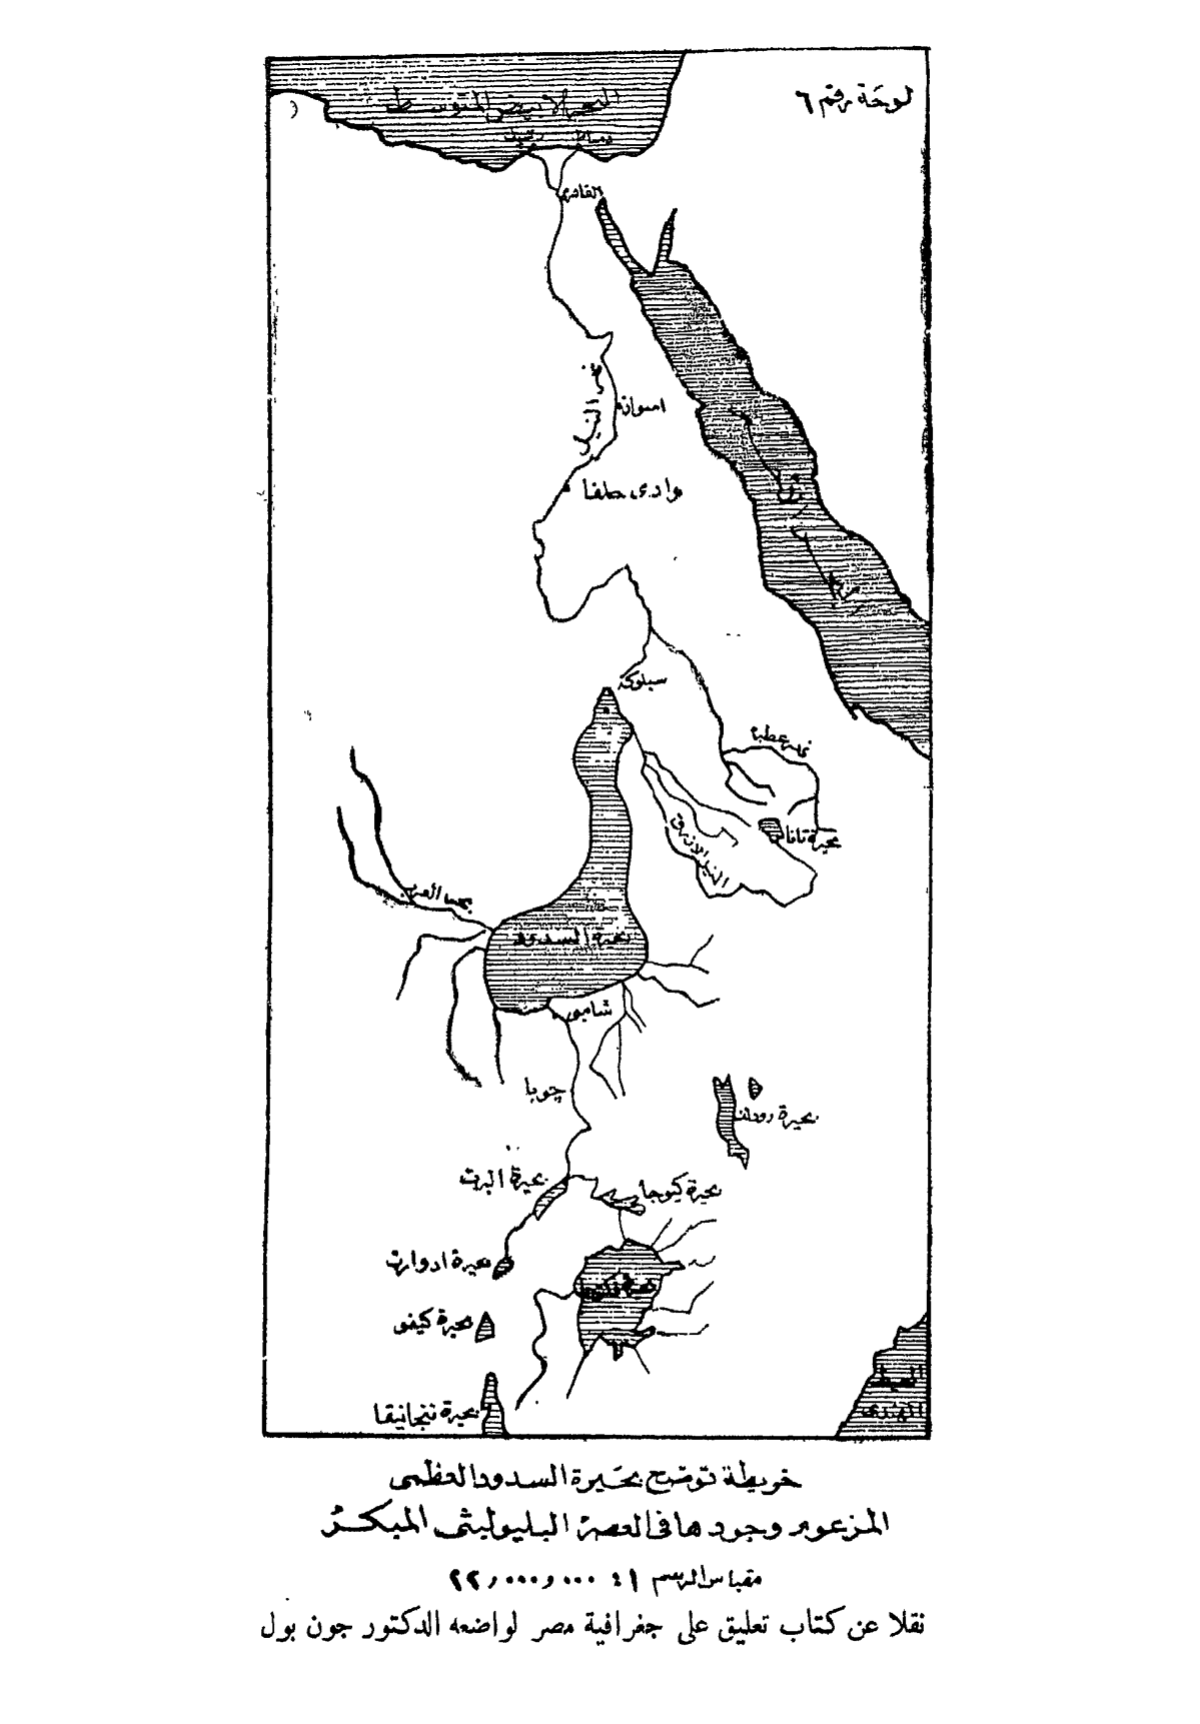 لوحة رقم ٦
البحر الأبيض المتوسط
رشيد
دمياط
القاهرة
نهر النيل
اسوان
وادى حلفا
سبلوكة
نهر عطبرة
بحيرة تانا
النيل الازرق
بحر العرب
بحيرة السدود
شامبى
جوبا
بحيرة رودلف
بحيرة البرت
بحيرة كيوجا
بحيرة ادوارد
بحيرة فكتوريا
بحيرة كيفو
بحيرة تنجانيقا
المحيط
الهندى
خريطة توضح بحيرة السدود العظمى
المزعوم وجودها فى العصر البليوليثى المبكر
مقياس الرسم ١ : ٢٢,٠٠٠,٠٠٠
نقلا عن كتاب تعليق على جغرافية مصر لواضعه الدكتور جون بول